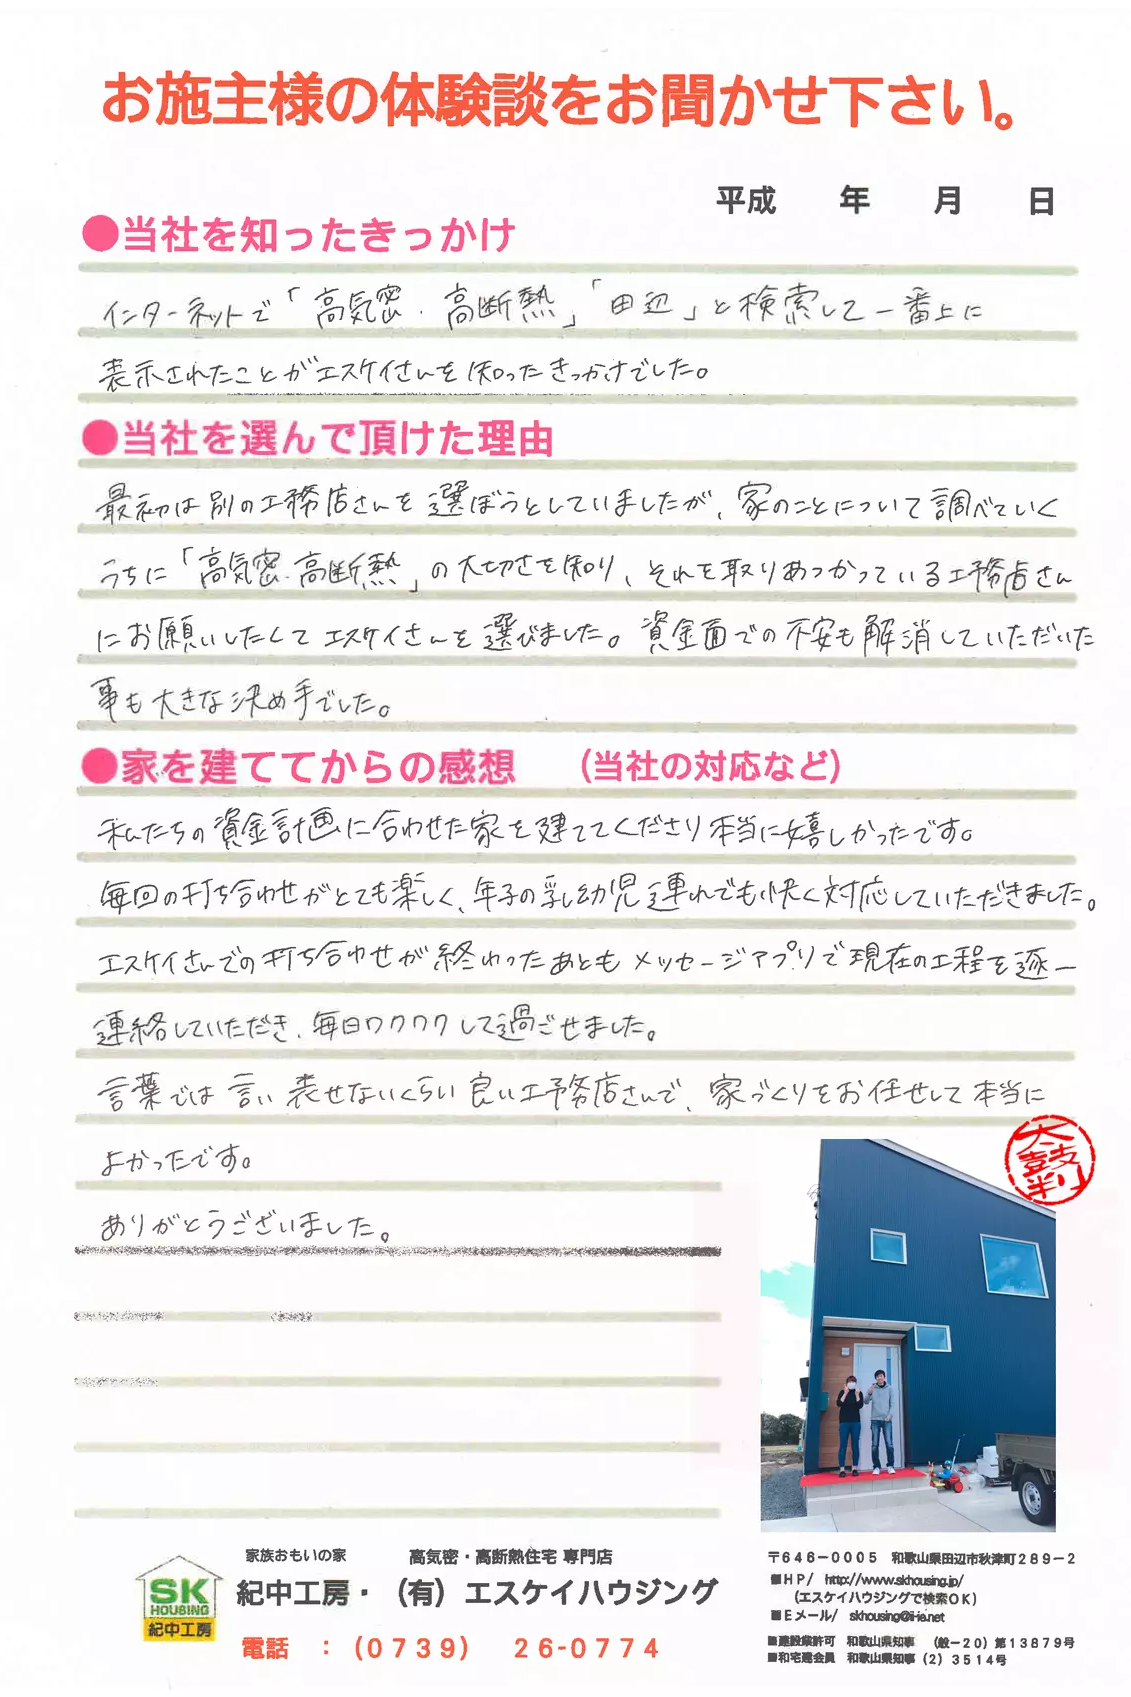 お施主様の体験談をお聞かせ下さい。
平成　　年　　月　　日
●当社を知ったきっかけ
インターネットで「高気密・高断熱」「田辺」と検索して一番上に
表示されたことがエスケイさんを知ったきっかけでした。
●当社を選んで頂けた理由
最初は別の工務店さんを選ぼうとしていましたが、家のことについて調べていく
うちに「高気密・高断熱」の大切さを知り、それを取りあつかっている工務店さん
にお願いしたくてエスケイさんを選びました。資金面での不安も解消していただいた
事も大きな決め手でした。
●家を建ててからの感想　（当社の対応など）
私たちの資金計画に合わせた家を建ててくださり本当に嬉しかったです。
毎回の打ち合わせがとても楽しく、年子の乳幼児連れでも快く対応していただきました。
エスケイさんでの打ち合わせが終わったあともメッセージアプリで現在の工程を逐一
連絡していただき、毎日ワクワクして過ごせました。
言葉では言い表せないくらい良い工務店さんで、家づくりをお任せして本当に
よかったです。
ありがとうございました。
太鼓判
SK
HOUSING
紀中工房
家族おもいの家　高気密・高断熱住宅 専門店
紀中工房・（有）エスケイハウジング
電話　：（０７３９）　２６-０７７４
〒６４６－０００５　和歌山県田辺市秋津町２８９－２
■ＨＰ/　http://www.skhousing.jp/
（エスケイハウジングで検索ＯＫ）
■Ｅメール/　skhousing@i-ie.net
■建設業許可　和歌山県知事　（般－２０）第１３８７９号
■和宅建会員　和歌山県知事（２）３５１４号